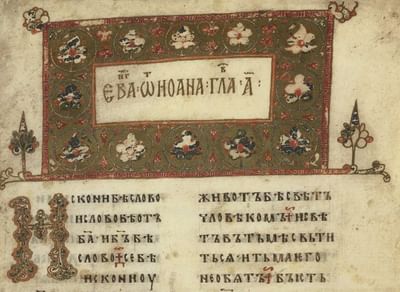 ЕВА·Ѡ ИОАНА·ГЛА·А҃:
Искони бѣ слово
и слово бѣ отъ
ба҃ и бъ҃ бѣ
слово се бѣ
искони оу
животъ бѣ свѣтъ
чловѣкомъ и свѣ
тъ въ тьмѣ свьти
ться и тьма ѥго
не обѧтъ бысть